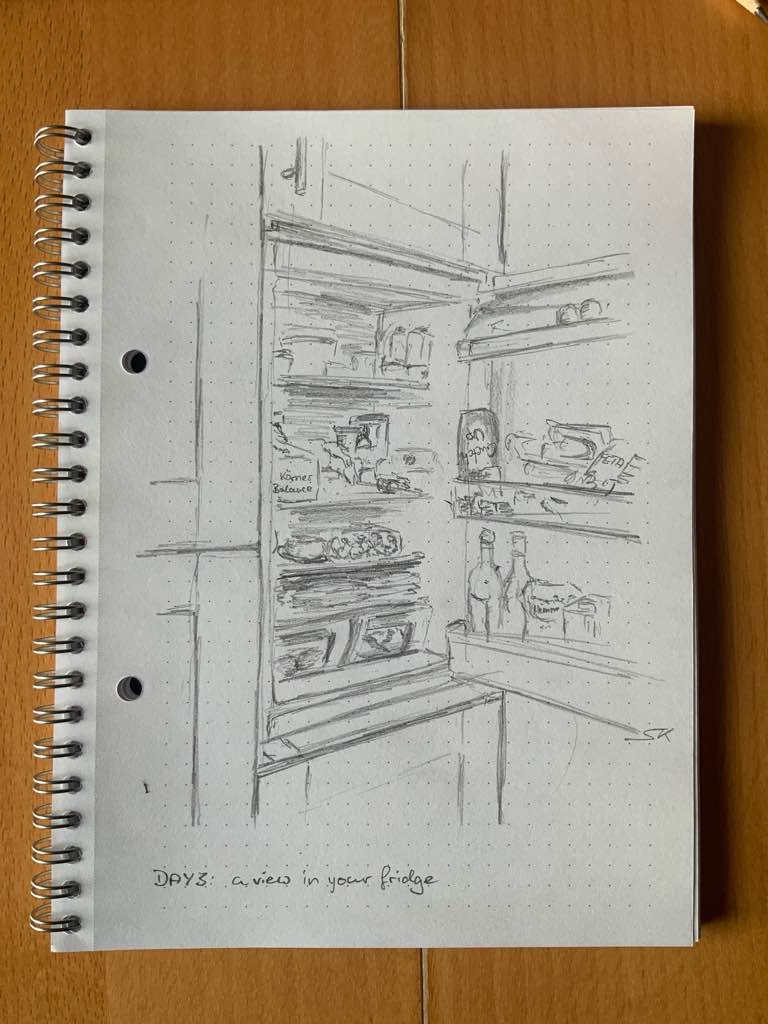 Körner
Balance
FETA
SK
DAY3: a view in your fridge